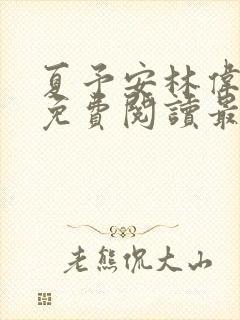 夏予安林偉
免費閱讀最
老熊侃大山